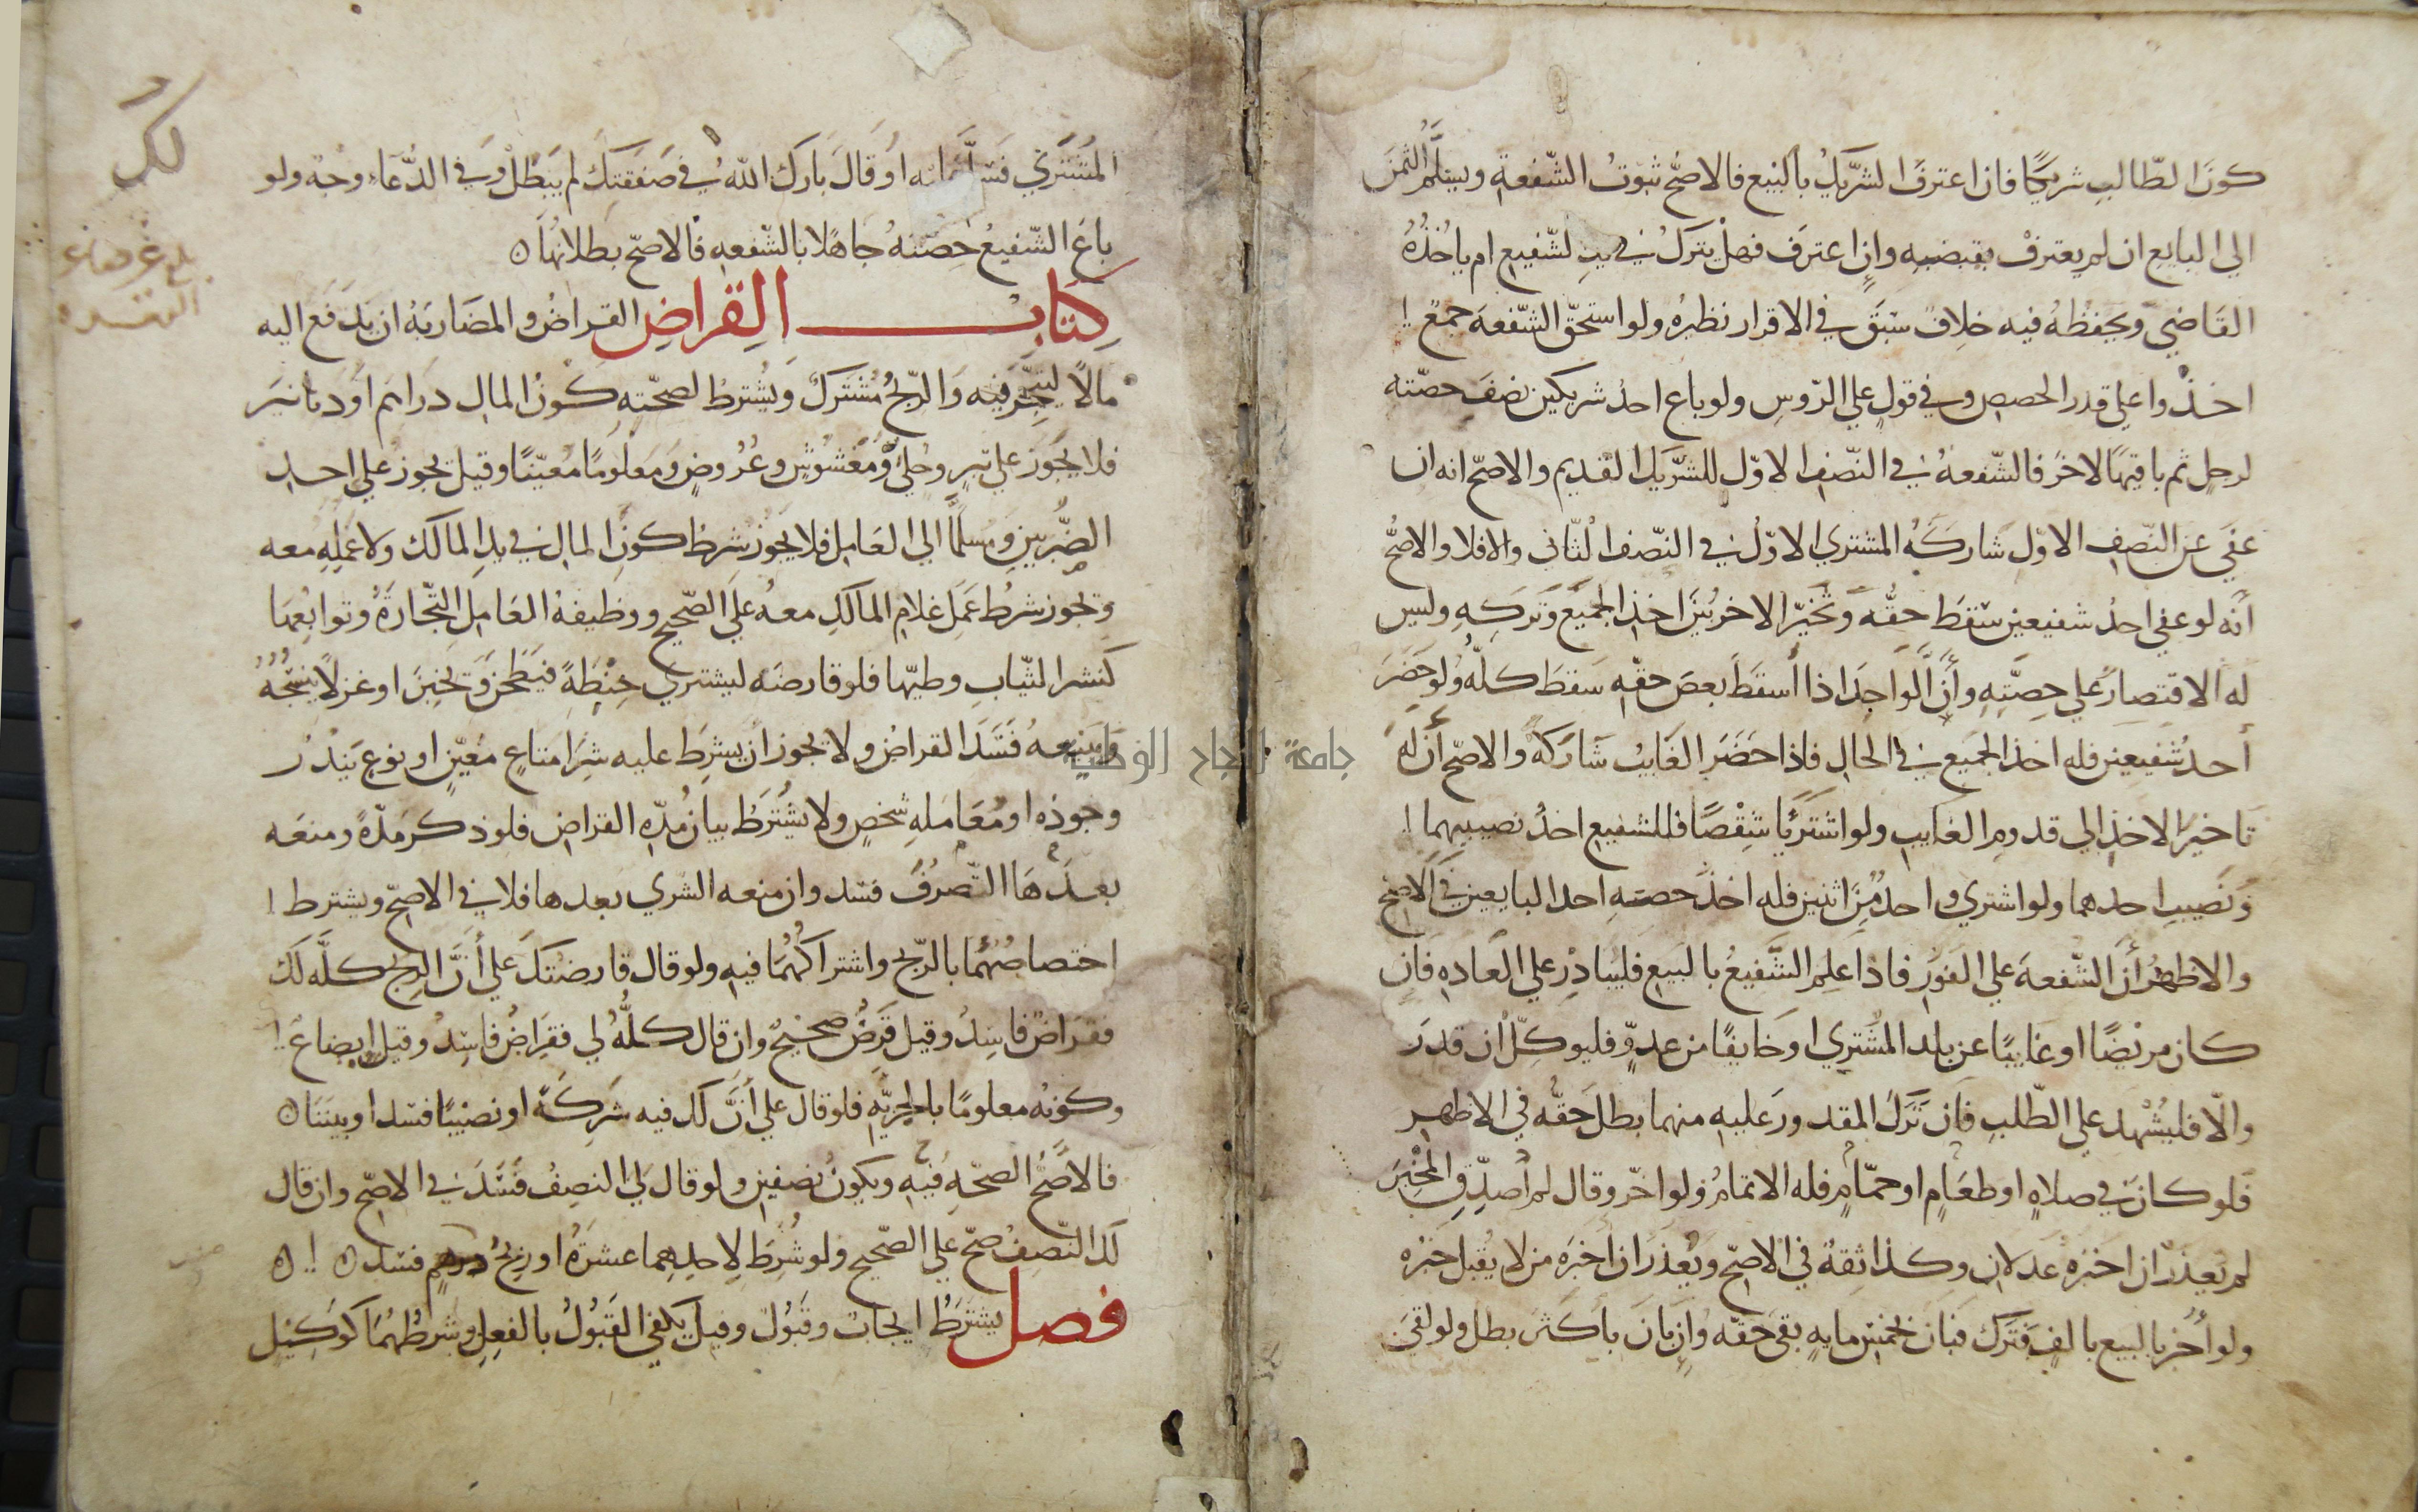 كون الطالب شريكا فان اعترف الشريك بالبيع فالاصح ثبوت الشفعة ويسلم الثمن
الي البايع ان لم يعترف بقبضه وان اعترف فهل يترك في يد الشفيع ام ياخذه
القاضي ويحفظه فيه خلاف سبق في الاقرار نظيره ولو استحق الشفعه جمع
اخذوا علي قدر الحصص وفي قول علي الروس ولو باع احد شريكين نصف حصته
لرجل ثم باقيها لاخر فالشفعة في النصف الاول للشريك القديم والاصح انه ان
عفي عن النصف الاول شاركه المشتري الاول في النصف الثاني والا فلا والاصح
أنه لو عفي احد شفيعين سقط حقه وتخير الاخر بين اخذ الجميع وتركه وليس
له الاقتصار علي حصته وأن الواحد اذا أسقط بعض حقه سقط كله ولو حضر
أحد شفيعين فله اخذ الجميع في الحال فاذا حضر الغايب شاركه والاصح أن له
تاخير الاخذ الي قدوم الغايب ولو اشتريا شقصا فللشفيع اخذ نصيبيهما
ونصيب احدهما ولو اشتري واحد من اثنين فله اخذ حصة احد البايعين في الاصح
والاظهر أن الشفعة علي الفور فاذا علم الشفيع بالبيع فليبادر علي العاده فان
كان مريضا او غايبا عن بلد المشتري او خايفا من عدو فليوكل ان قدر
والا فليشهد علي الطلب فان ترك المقدور عليه منهما بطل حقه في الاظهر
فلو كان في صلاه او طعام او حمام فله الاتمام ولو اخر وقال لم أصدق المخبر
لم يعذر ان اخبره عدلان وكذا ثقة في الاصح ويعذر ان أخبره من لا يقبل خبره
ولو أخبر بالبيع بالف فترك فبان بخمس مايه بقي حقه وان بان باكثر بطل ولو لقي
المشتري فسلم عليه او قال بارك الله في صفقتك لم يبطل وفي الدعاء وجه ولو
باع الشفيع حصته جاهلا بالشفعه فالاصح بطلانها
كتاب القراض القراض والمضاربة ان يدفع اليه
مالا ليتجر فيه والربح مشترك ويشترط لصحته كون المال دراهم او دنانير
فلا يجوز علي تبر وحلي ومغشوش وعروض ومعلوما معينا وقيل يجوز علي احدي
الضربين ومسلما الي العامل فلا يجوز شرط كون المال في يد المالك ولا عمله معه
ويجوز شرط عمل غلام المالك معه علي الصحيح ووظيفة العامل التجارة وتوابعها
كنشر الثياب وطيها فلو قارضه ليشتري حنطة فيطحن ويخبز او غزلا ينسجه
ويبيعه فسد القراض ولا يجوز ان يشرط عليه شرا متاع معين او نوع يندر
وجوده او معاملة شخص ولا يشترط بيان مده القراض فلو ذكر مدة ومنعه
بعدها التصرف فسد وان منعه الشري بعدها فلا في الاصح ويشترط
اختصاصهما بالربح واشتراكهما فيه ولو قال قارضتك علي أن الربح كله لك
فقراض فاسد وقيل قرض صحيح وان قال كله لي فقراض فاسد وقيل ابضاع
وكونه معلوما بالجزيه فلو قال علي أن لك فيه شركة او نصيبا فسد او بيننا
فالاصح الصحه فيه ويكون نصفين ولو قال لي النصف فسد في الاصح وان قال
لك النصف صح علي الصحيح ولو شرط لاحدهما عشرة او ربح درهم فسد
فصل يشترط ايجاب وقبول وقيل يكفي القبول بالفعل وشرطهما كوكيل
لك
جامعة النجاح الوطنية